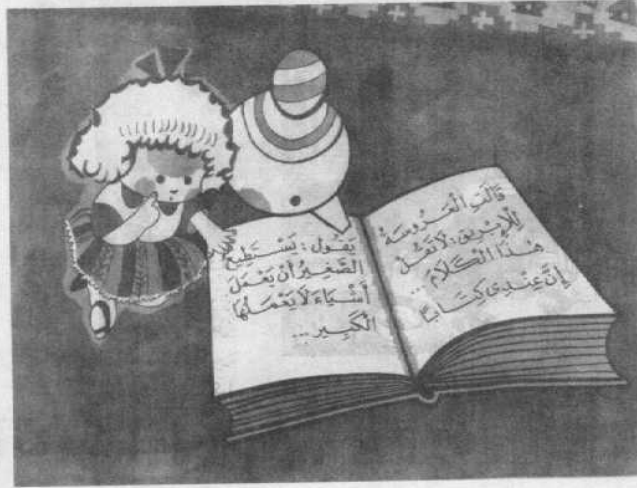 قَالَتِ الْعَرُوسَةُ
لِلْإِبْرِيقِ: لَا تَقُلْ
هٰذَا الْكَلَامَ...
إِنَّ عِنْدِي كِتَابًا
يَقُولُ: يَسْتَطِيعُ
الصَّغِيرُ أَنْ يَعْمَلَ
أَشْيَاءَ لَا يَعْمَلُهَا
الْكَبِير...